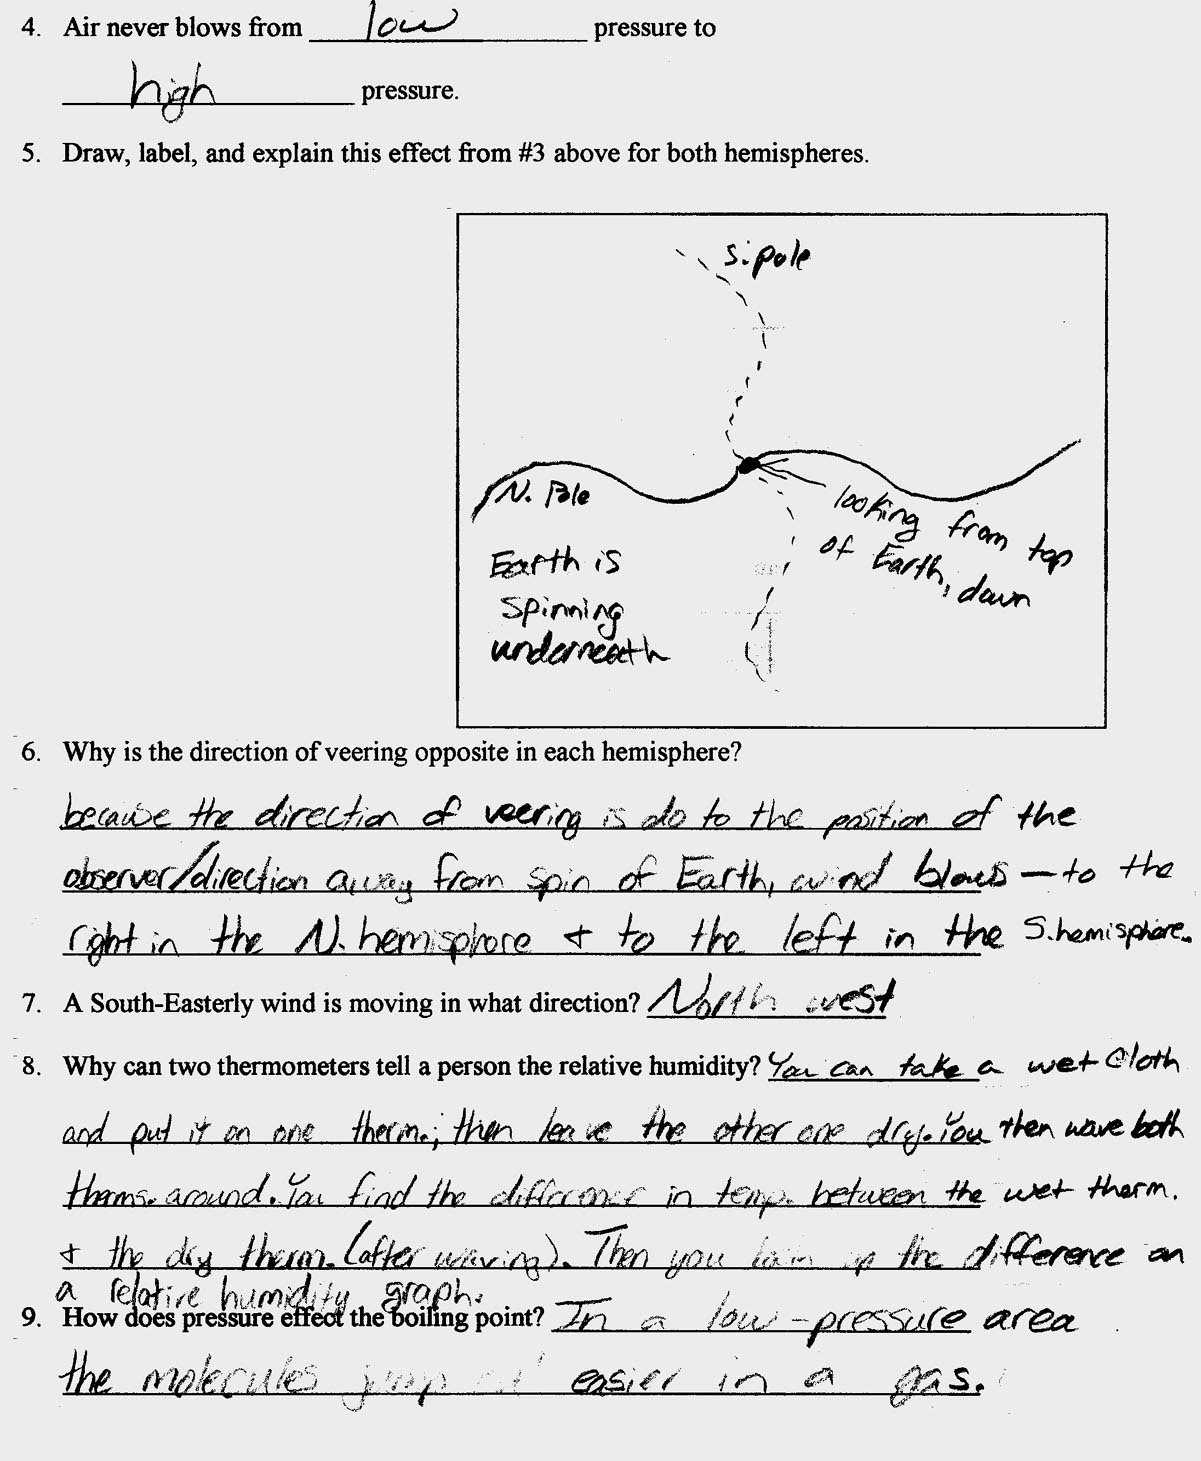 4. Air never blows from low pressure to
high pressure.
5. Draw, label, and explain this effect from #3 above for both hemispheres.
S. pole
N. Pole
looking from top
of Earth, down
Earth is
spinning
underneath
6. Why is the direction of veering opposite in each hemisphere?
because the direction of veering is do to the position of the
observer/direction away from spin of Earth, wind blows – to the
right in the N. hemisphere + to the left in the S. hemisphere.
7. A South-Easterly wind is moving in what direction? North west
8. Why can two thermometers tell a person the relative humidity? You can take a wet cloth
and put it on one therm.; then leave the other one dry. You then wave both
therms. around. You find the difference in temp. between the wet therm.
+ the dry therm. (after waving). Then you up the difference on
a relative humidity graph.
9. How does pressure effect the boiling point? In a low-pressure area
the molecules jump easier in a gas.